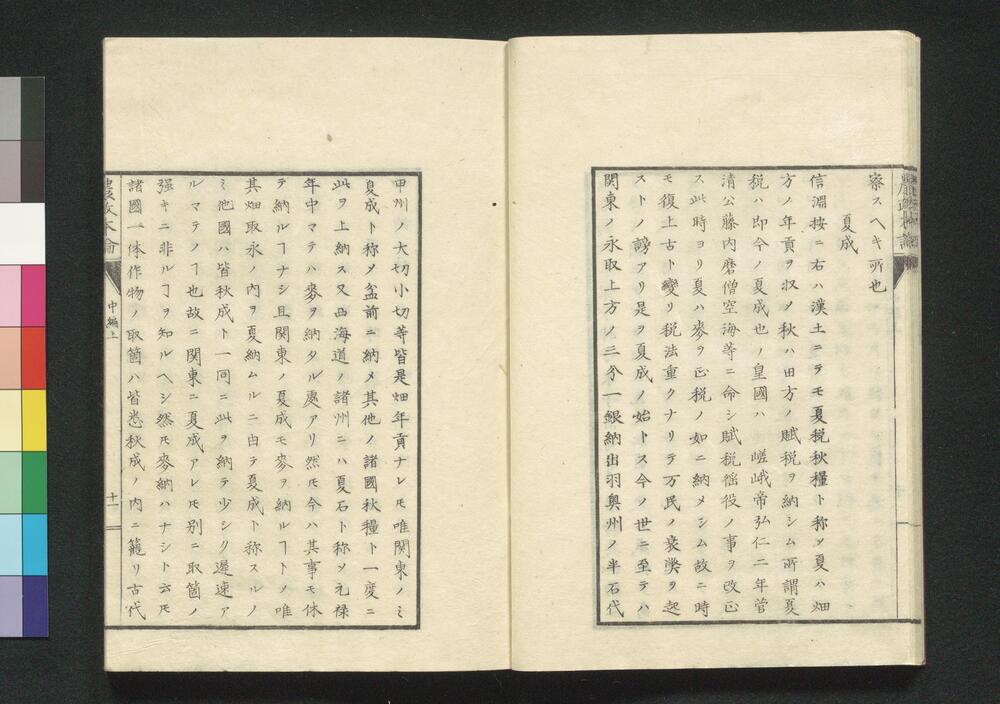 察スヘキ所也
夏成
信淵按ニ右ハ漢土ニテモ夏税秋糧ト称〆夏ハ畑
方ノ年貢ヲ収メ秋ハ田方ノ賦税ヲ納シム所謂夏
税ハ即今ノ夏成也ノ皇國ハ嵯峨帝弘仁二年菅
清公藤内磨僧空海等ニ命シ賦税徭役ノ事ヲ改正
ス此時ヨリ夏ハ麥ヲ正税ノ如ニ納メシム故ニ時
モ復上古ト變リ税法重クナリテ万民ノ衰獘ヲ起
ストノ謗アリ是ヲ夏成ノ始トス今ノ世ニ至テハ
関東ノ永取上方ノ三分一銀納出羽奥州ノ半石代
甲州ノ大切小切等皆是畑年貢ナレ𪜈唯関東ノミ
夏成ト称〆盆前ニ納メ其他ノ諸國秋糧ト一度ニ
此ヲ上納ス又西海道ノ諸州ニハ夏石ト称〆元禄
年中マテハ麥ヲ納タル處アリ然𪜈今ハ其事モ休
テ納ルヿナシ且関東ノ夏成モ麥ヲ納ルヿトノ唯
其畑取永ノ内ヲ夏納ムルニ由テ夏成ト称スルノ
ミ他國ハ皆秋成ト一同ニ此ヲ納テ少シク遲速ア
ルマテノヿ也故ニ関東ニ夏成アレ𪜈別ニ取箇ノ
强キニ非ルヿヲ知ルヘシ然𪜈麥納ハナシト云𪜈
諸國一体作物ノ取箇ハ皆悉秋成ノ内ニ籠リ古代
農政本論
中編上
十一